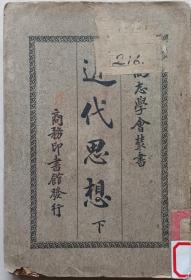 216.
尚志學會叢書
近代思想 下
商務印書館發行